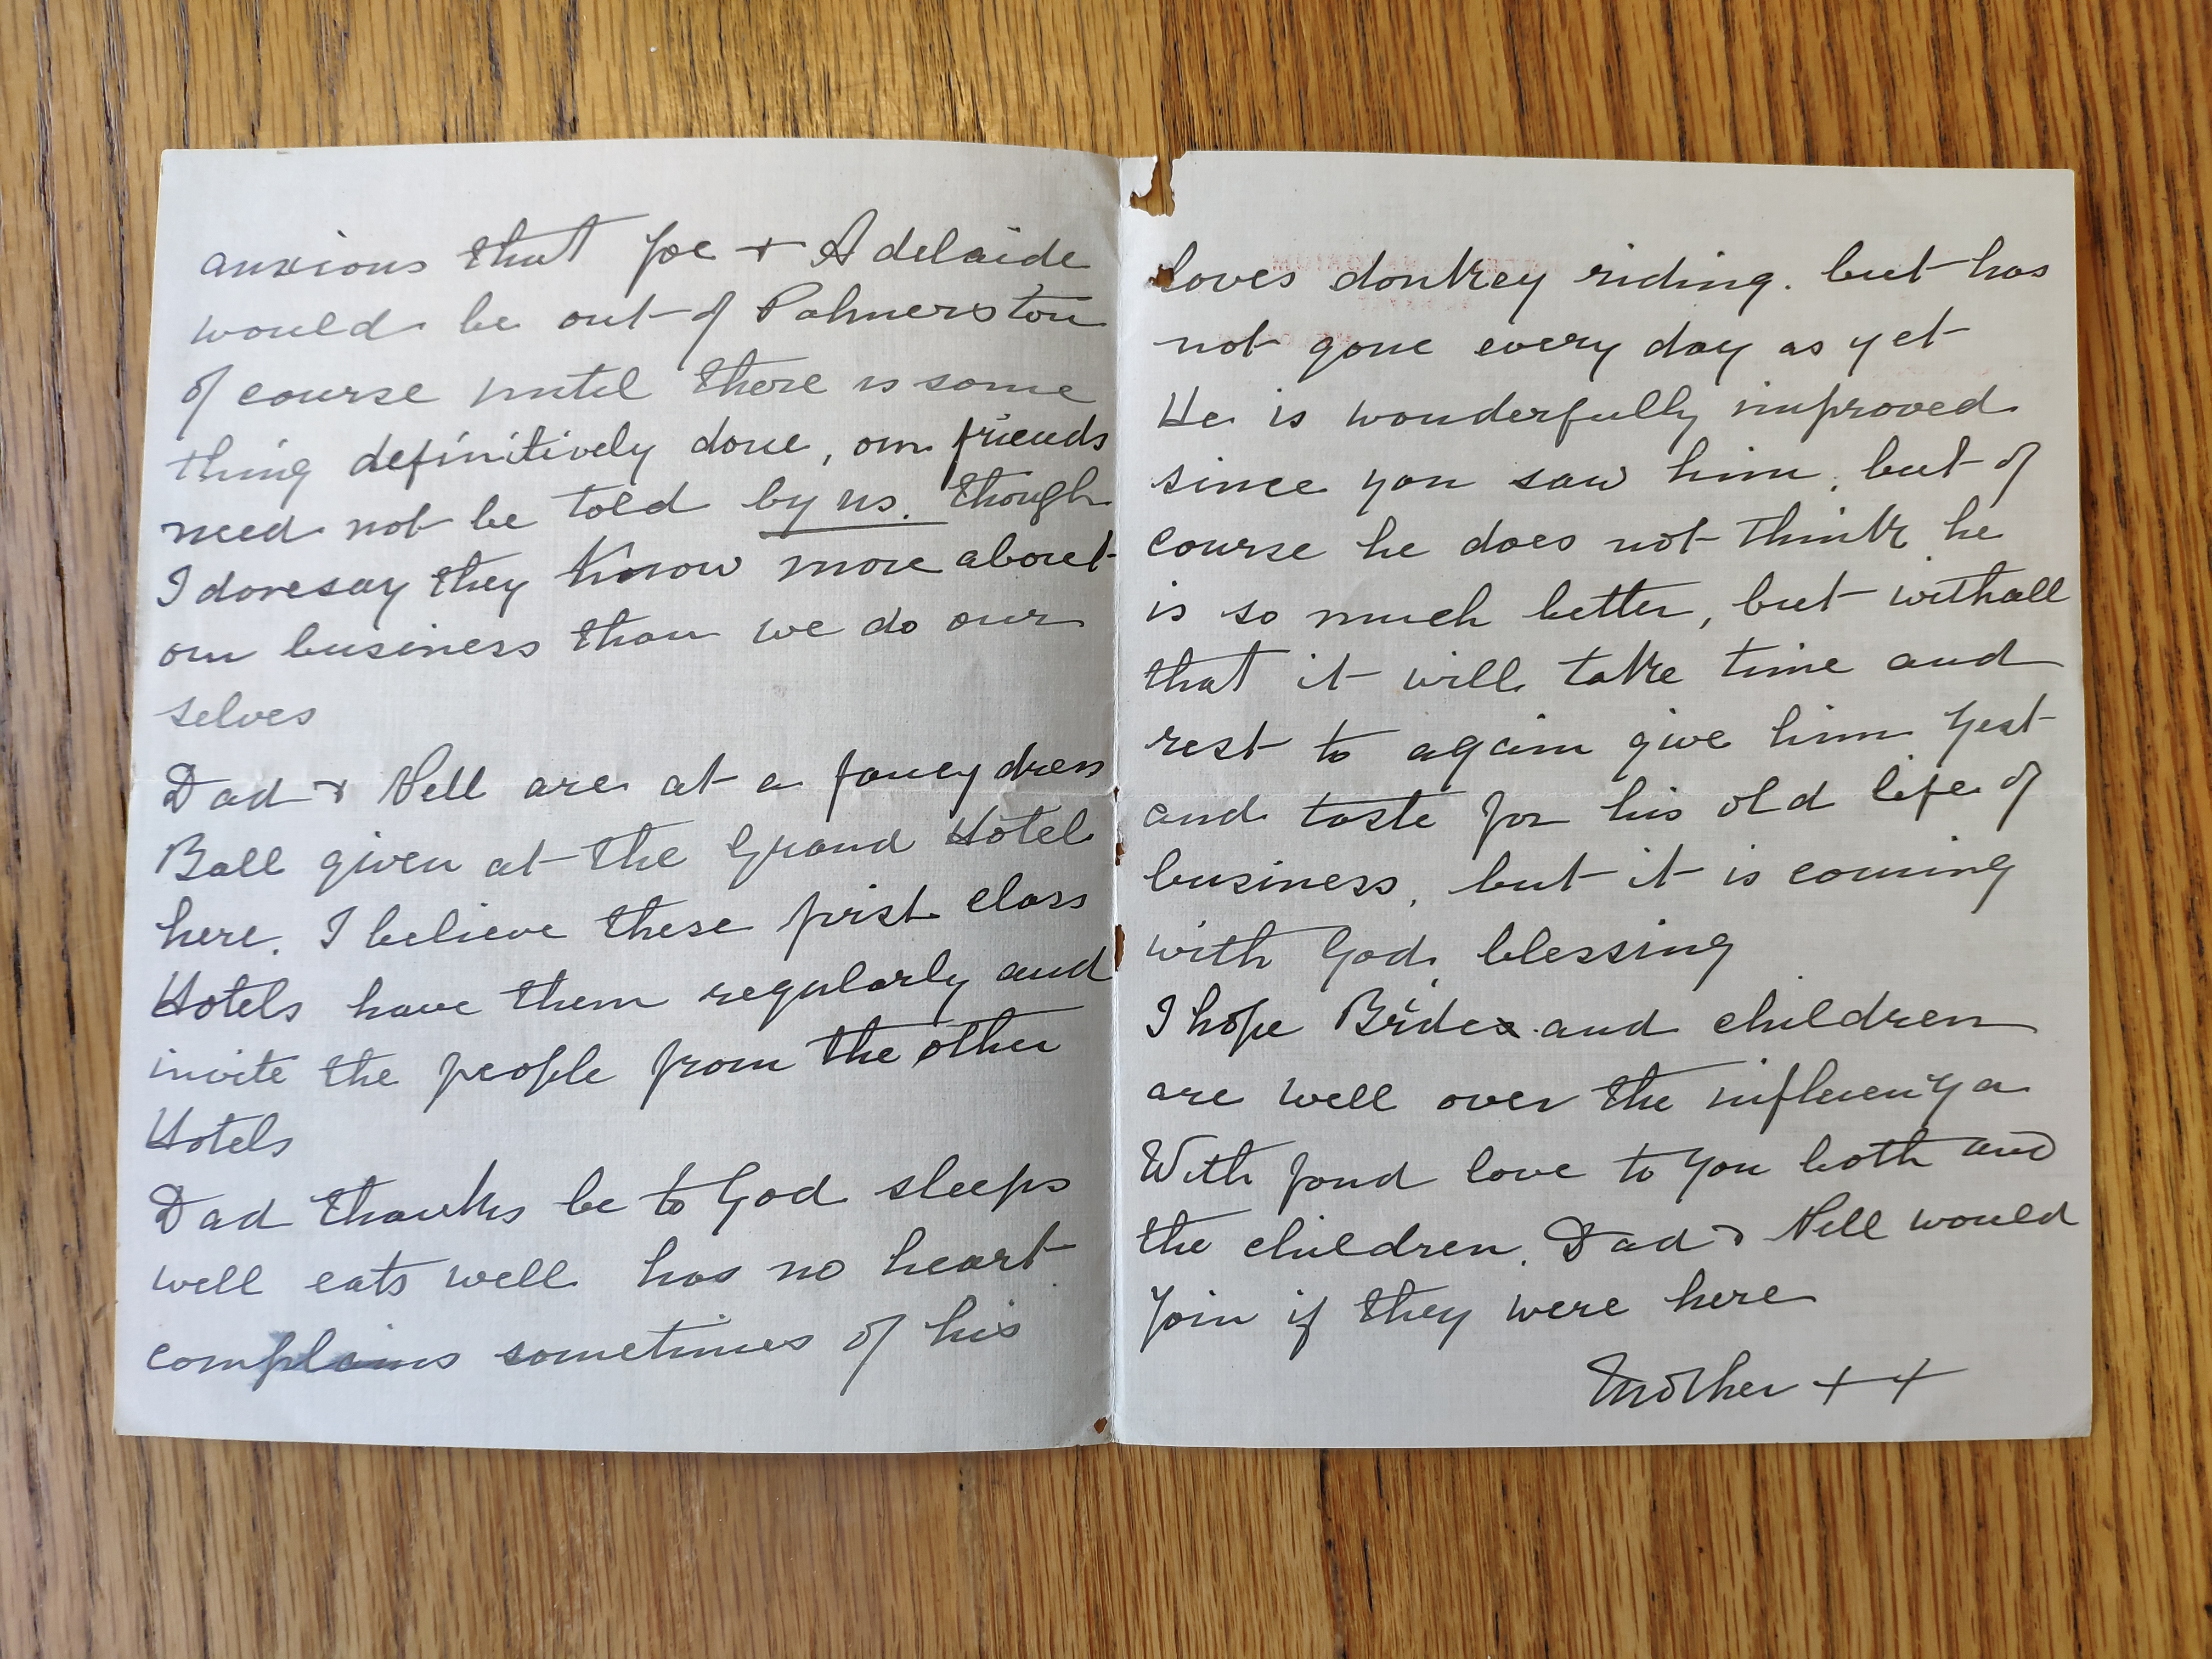 anxious that Joe + Adelaide
would be out of Palmerston
of course until there is some
thing definitively done, our friends
need not be told by us. though
I daresay they know more about
our business than we do our
selves
Dad & Nell are at a fancy dress
Ball given at the Grand Hotel
here. I believe these first class
Hotels have them regularly and
invite the people from the other
Hotels
Dad thanks be to God sleeps
well eats well has no heart
complains sometimes of his
loves donkey riding. but has
not gone every day as yet
He is wonderfully improved
since you saw him, but of
course he does not think he
is so much better, but withall
that it will take time and
rest to again give him zest
and taste for his old life of
business, but it is coming
with God blessing
I hope and children
are well over the influenza
With fond love to you both and
the children. Dad & Nell would
join if they were here
Mother + +